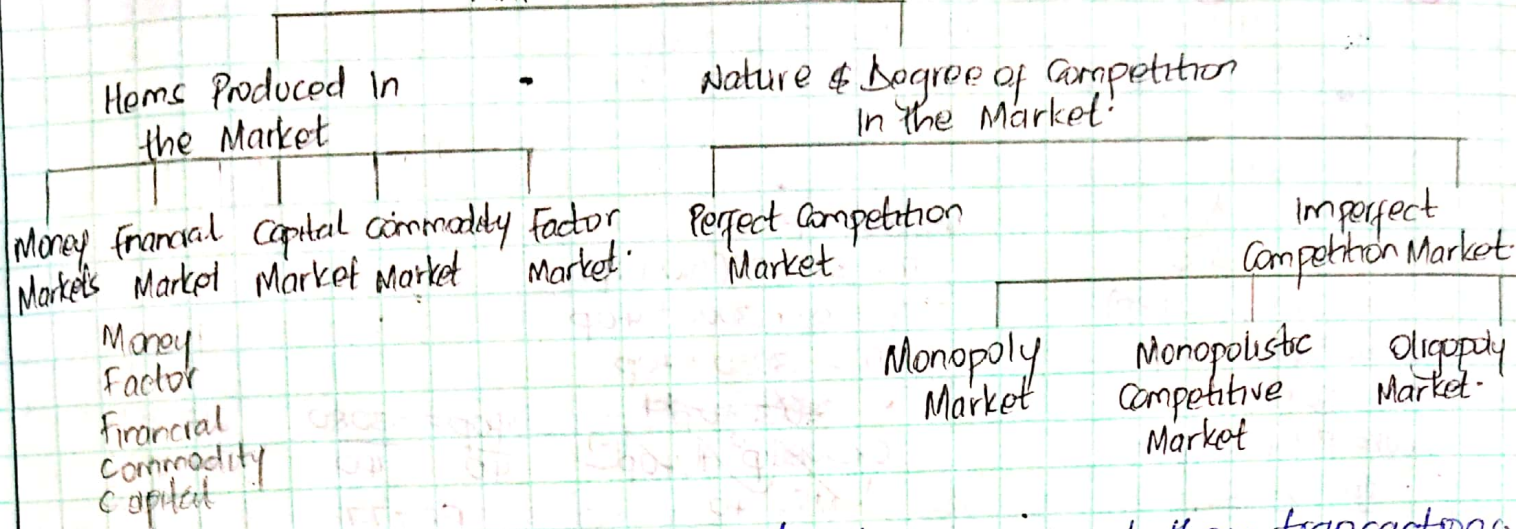 Items Produced In
the Market
Nature & Degree of Competition
In the Market.
Money Financial Capital Commodity Factor
Markets Market Market Market Market.
Perfect Competition
Market
Imperfect
Competition Market.
Money
Factor
Financial
Commodity
Capital
Monopoly
Market
Monopolistic
Competitive
Market
Oligopoly
Market.
transactions